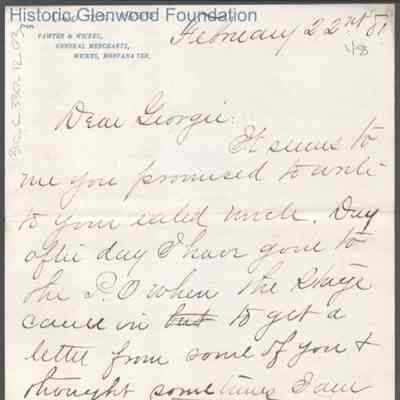 Historic Glenwood Foundation
From
VAWTER & WICKES,
GENERAL MERCHANTS,
WICKES, MONTANA TER.
February 22nd 81
1/8
Dear Georgie:
It seems to
me you promised to write
to your exiled uncle. Day
after day I have gone to
the P.O when the Stage
came in but to get a
letter from some of you &
thought sometimes I am